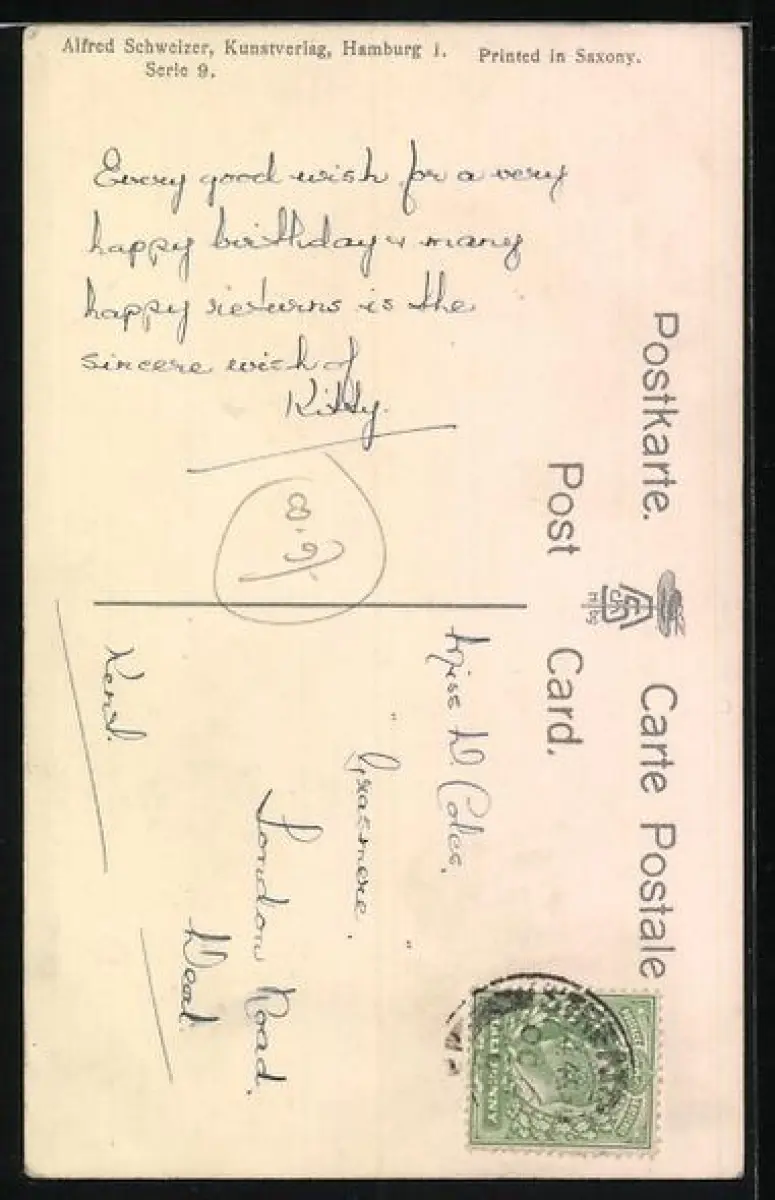 Alfred Schweizer, Kunstverlag, Hamburg 1. Printed in Saxony.
Serie 9.
Every good wish for a very
happy birthday & many
happy returns is the
sincere wish of
Kitty.
Postkarte. Carte Postale
Post Card.
Miss D. Coles,
"Grasmere,"
London Road,
Deal
Kent.
HALFPENNY